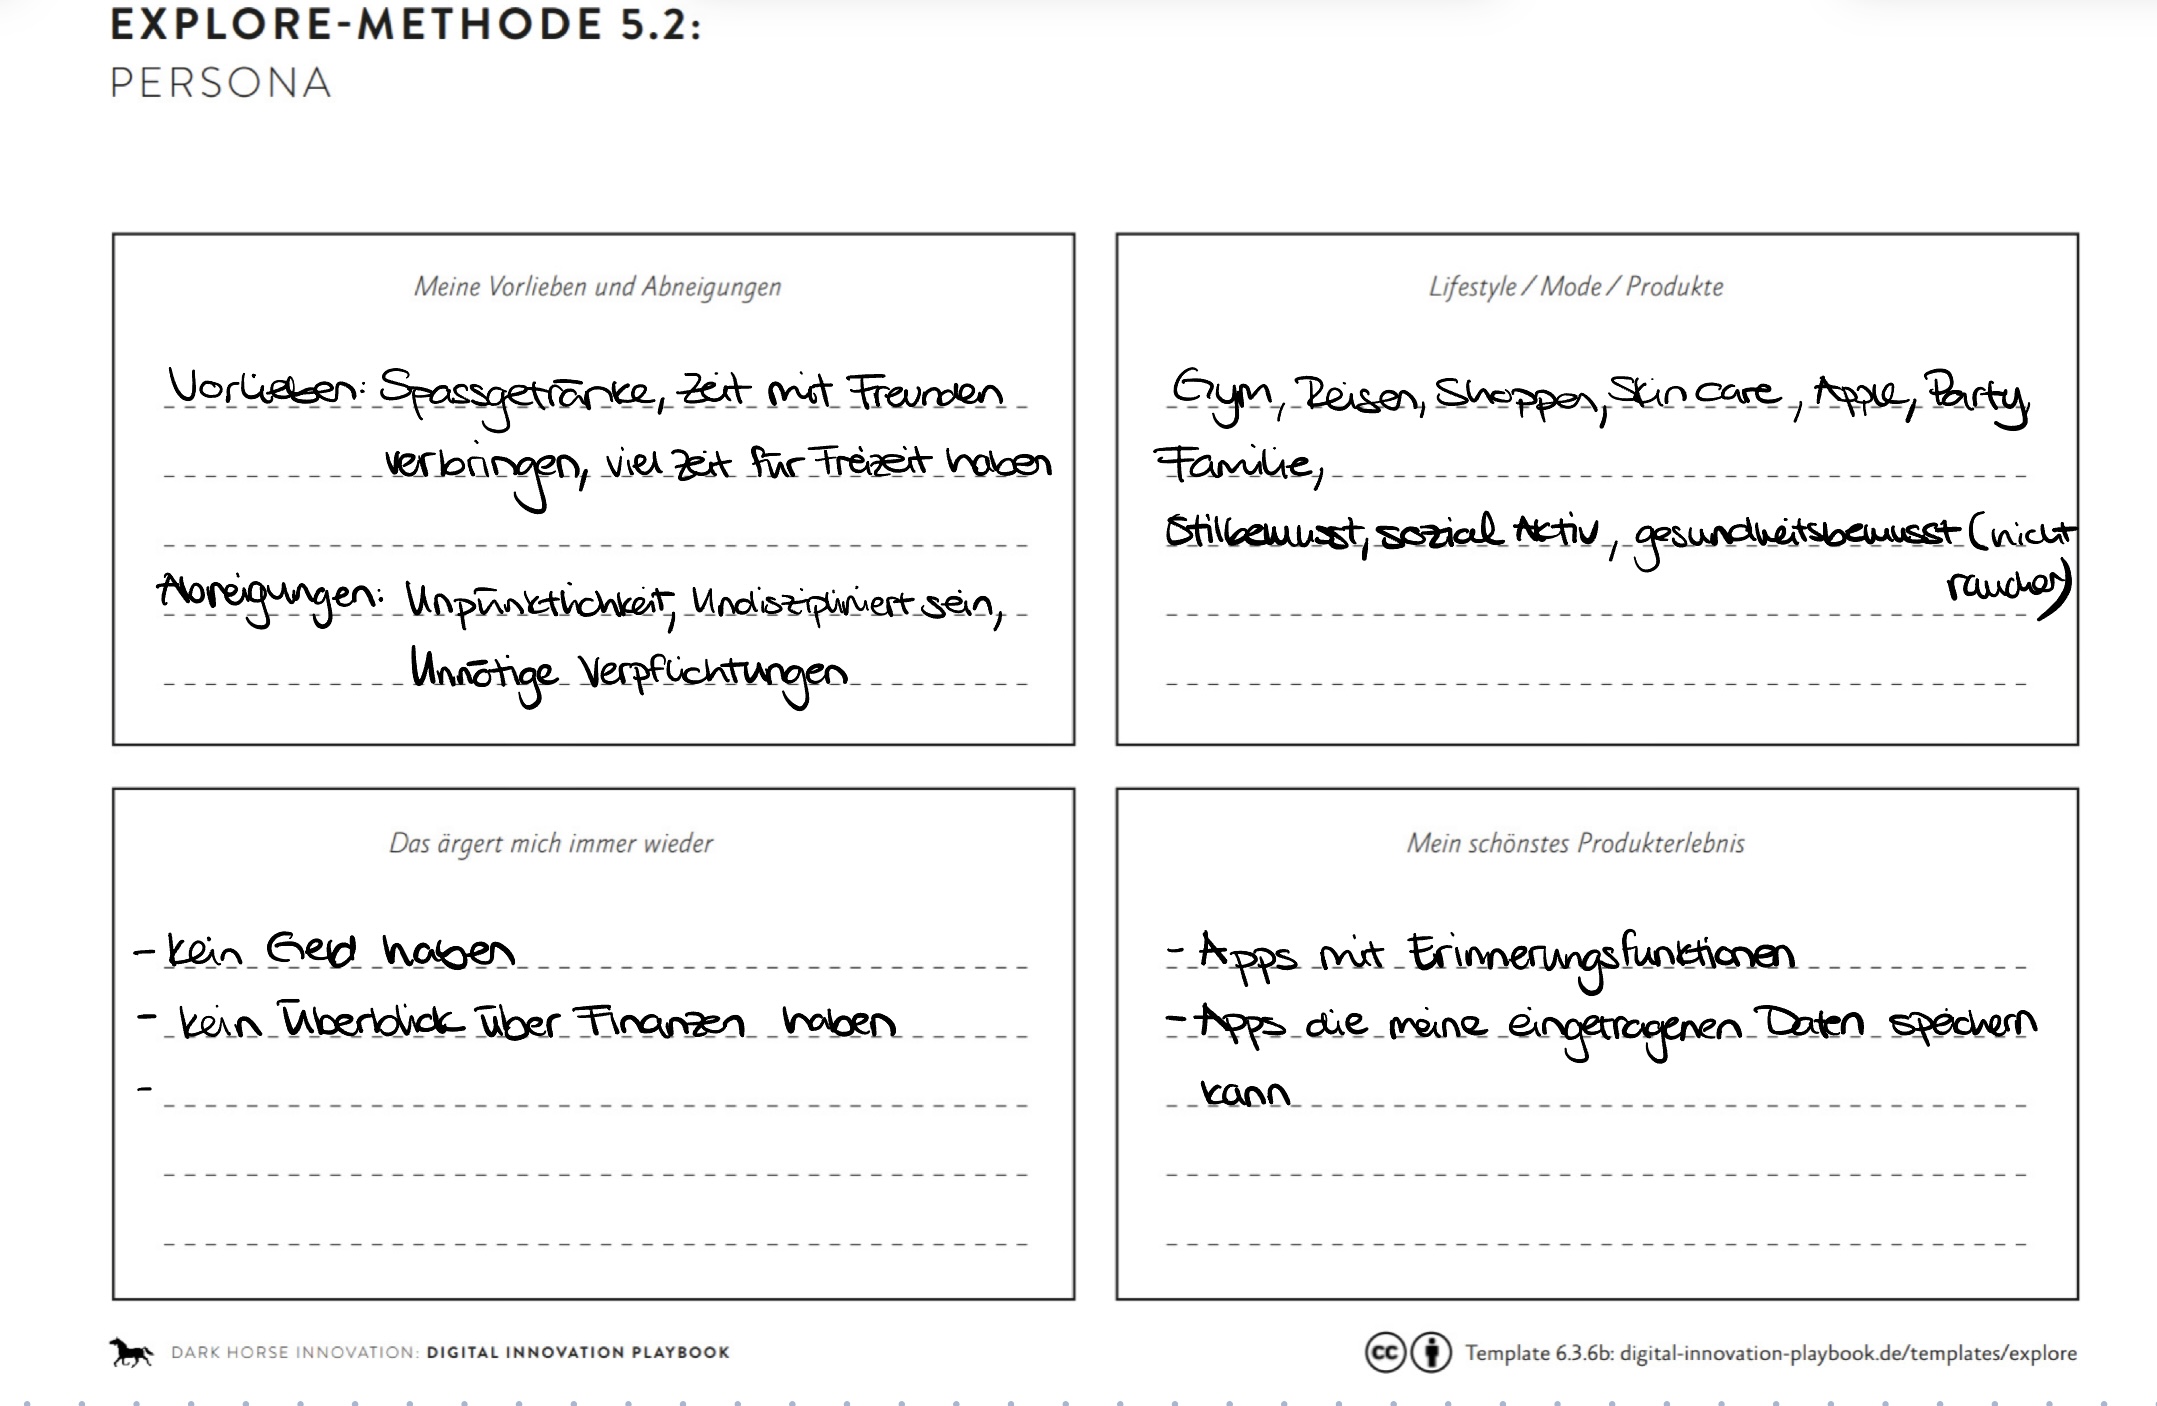 EXPLORE-METHODE 5.2:
PERSONA
Meine Vorlieben und Abneigungen
Vorlieben: Spassgetränke, Zeit mit Freunden
verbringen, viel Zeit für Freizeit haben
Abneigungen: Unpünktlichkeit, Undiszipliniert sein,
Unnötige Verpflichtungen
Lifestyle / Mode / Produkte
Gym, Reisen, Shoppen, Skincare, Apple, Party
Familie,
Stilbewusst, sozial Aktiv, gesundheitsbewusst (nicht
raucher)
Das ärgert mich immer wieder
- kein Geld haben
- kein Überblick über Finanzen haben
-
Mein schönstes Produkterlebnis
- Apps mit Erinnerungsfunktionen
- Apps die meine eingetragenen Daten speichern
kann
DARK HORSE INNOVATION: DIGITAL INNOVATION PLAYBOOK
cc Template 6.3.6b: digital-innovation-playbook.de/templates/explore